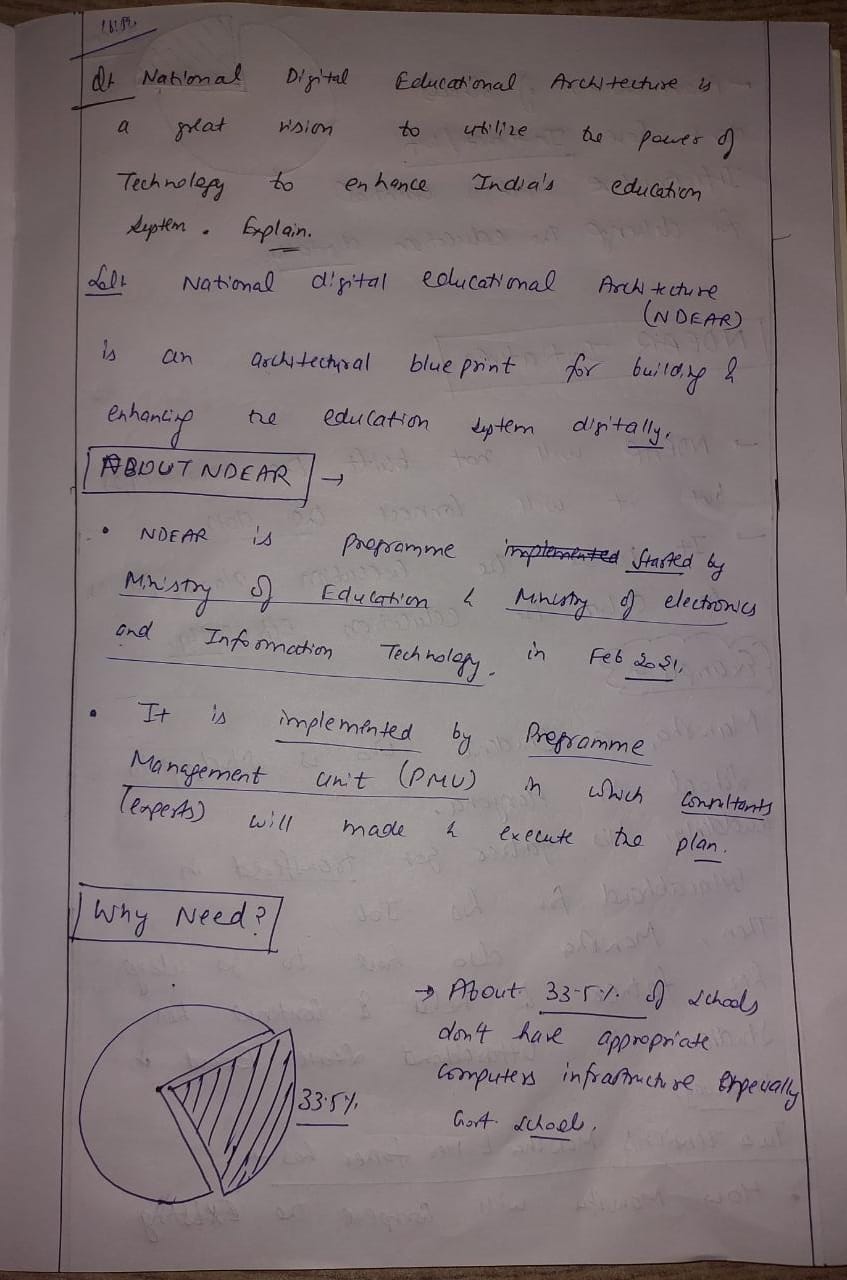 Q:- National Digital Educational Architecture is
a great vision to utilize the power of
Technology to enhance India's education
system. Explain.
Sol:- National digital educational Architecture
(NDEAR)
is an architectural blue print for building &
enhancing the education system digitally.
ABOUT NDEAR →
• NDEAR is programme implemented started by
Ministry of Education & Ministry of electronics
and Information Technology. in Feb 2021.
• It is implemented by Programme
Management unit (PMU) in which consultants
(experts) will made & execute the plan.
Why Need?
→ About 33.5% of schools
don't have appropriate
computers infrastructure especially
Govt. schools.
33.5%